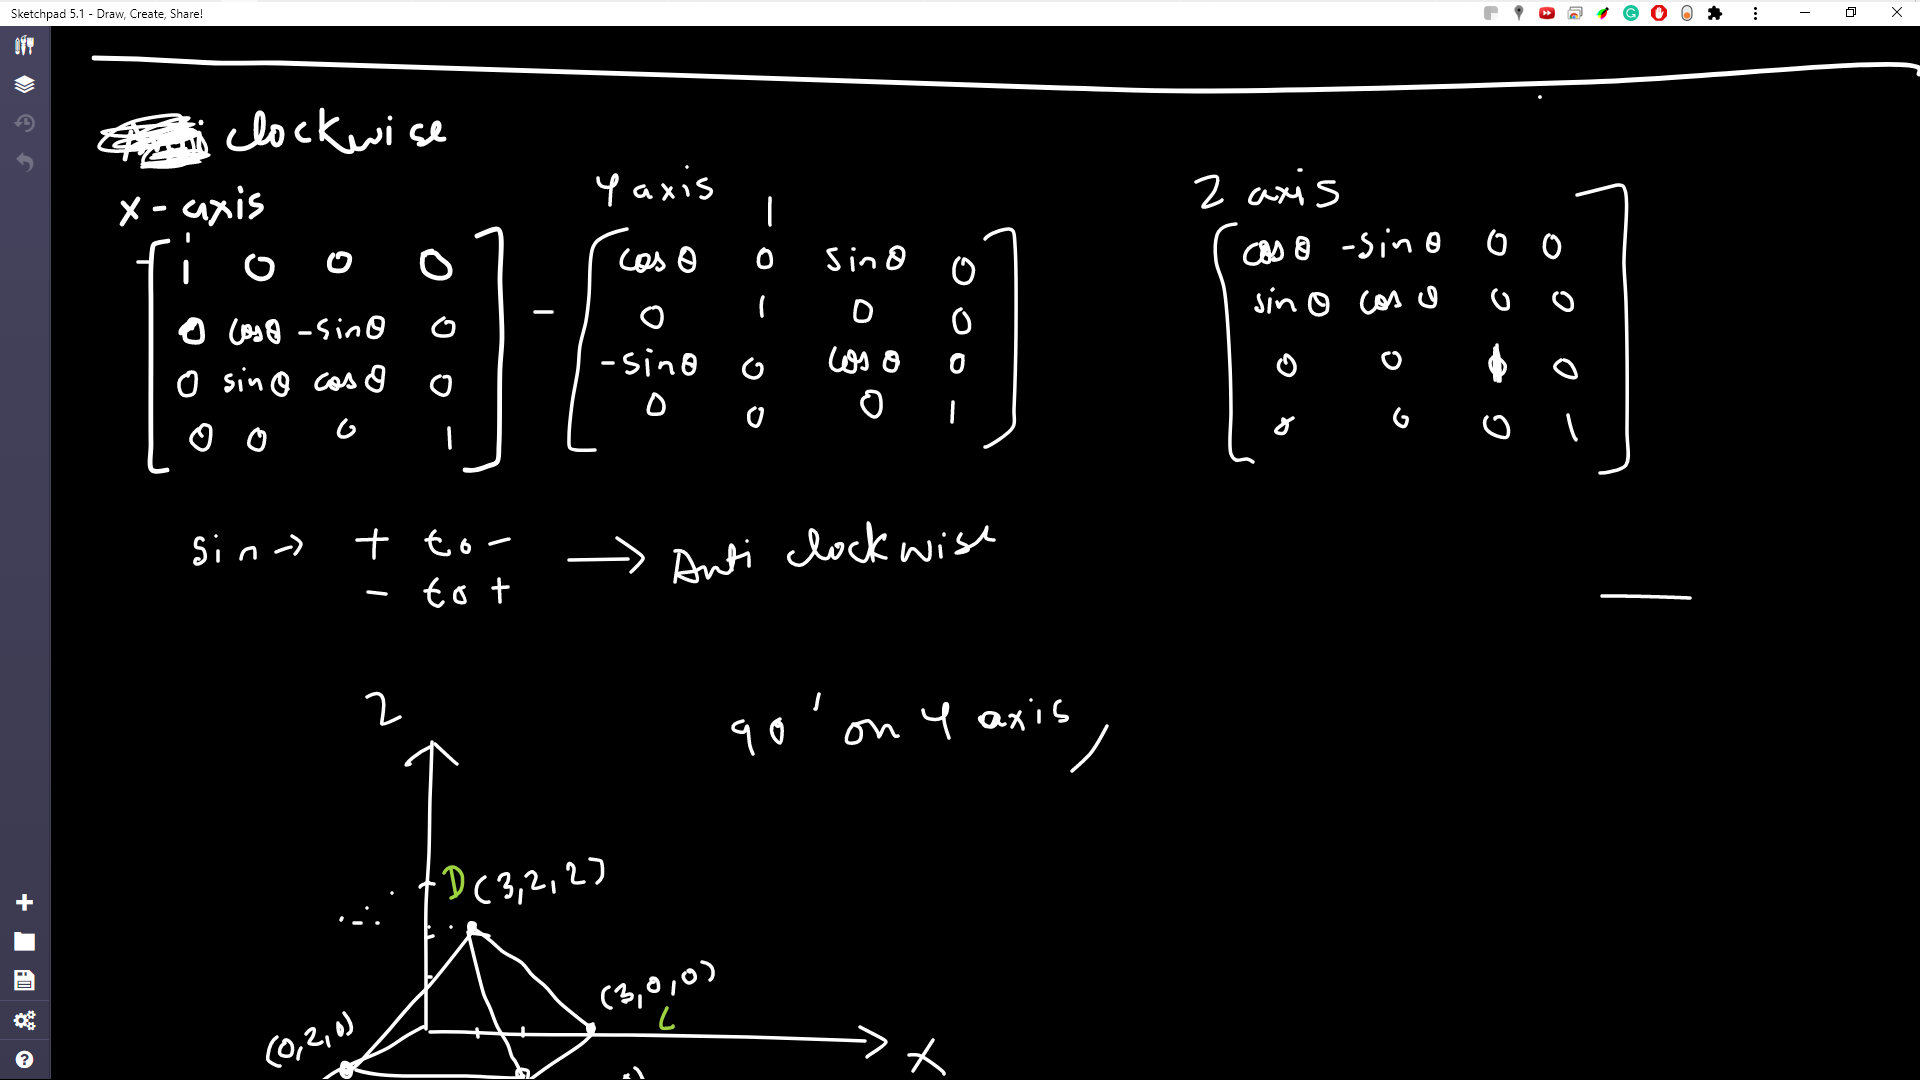 Sketchpad 5.1 - Draw, Create, Share!
clockwise
x - axis
Y axis
Z axis
1 0 0 0
0 cosθ -sinθ 0
0 sinθ cosθ 0
0 0 0 1
cosθ 0 sinθ 0
0 1 0 0
-sinθ 0 cosθ 0
0 0 0 1
cosθ -sinθ 0 0
sinθ cosθ 0 0
0 0 1 0
0 0 0 1
sin → + to - → Anti clockwise
- to +
Z
90° on Y axis,
D (3,2,2)
(3,0,0)
C
(0,2,0)
X